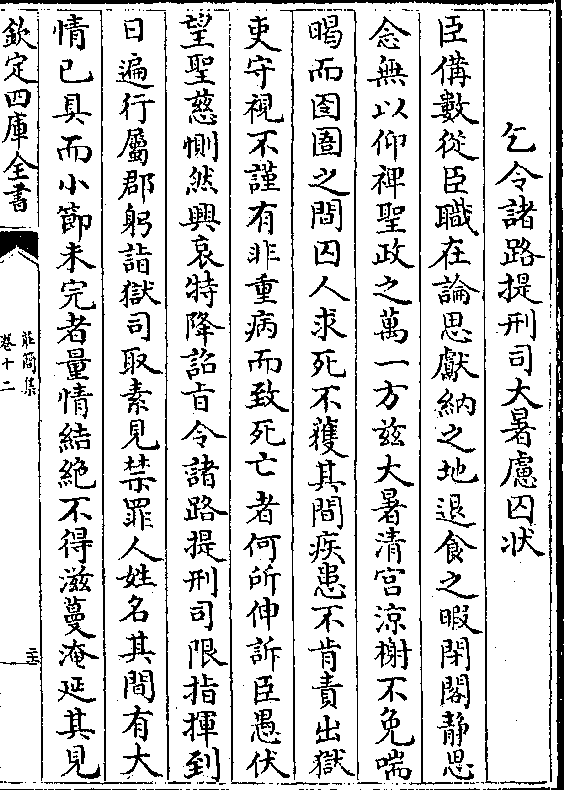 乞令諸路提刑司大暑慮囚狀
臣備數從臣職在論思獻納之地退食之暇閉閣静思
念無以仰裨聖政之萬一方兹大暑清宫涼榭不免喘
暍而囹圄之間囚人求死不獲其間疾患不肯責出獄
吏守視不謹有非重病而致死亡者何所伸訴臣愚伏
望聖慈惻然興哀特降詔旨令諸路提刑司限指揮到
日遍行屬郡躬詣獄司取索見禁罪人姓名其間有大
情已具而小節未完者量情結絶不得滋蔓淹延其見
欽定四庫全書
莊簡集
卷十二